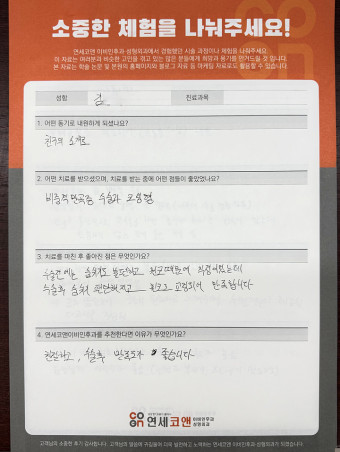 소중한 체험을 나눠주세요!
연세코앤 이비인후과 성형외과에서 경험했던 시술 과정이나 체험을 나눠주세요.
이 자료는 여러분과 비슷한 고민을 겪고 있는 많은 분들에게 희망과 용기를 안겨드릴 것 입니다.
본 자료는 학술 논문 및 본원의 홈페이지와 블로그 자료 등 마케팅 자료로도 활용할 수 있습니다.
성함 김 진료과목
1. 어떤 동기로 내원하게 되셨나요?
친구의 소개로
2. 어떤 치료를 받으셨으며, 치료를 받는 중에 어떤 점들이 좋았었나요?
비중격 만곡증 수술과 코성형
3. 치료를 마친 후 좋아진 점은 무엇인가요?
수술전에는 숨쉬기도 불편하고
수술후 숨쉬기 편안해지고 만족합니다
4. 연세코앤이비인후과를 추천한다면 이유가 무엇인가요?
친절하고, 수술후 만족도가 좋습니다
연세코앤 이비인후과 성형외과
고객님의 소중한 후기 감사합니다. 고객님의 말씀에 귀기울여 더욱 발전하고 노력하는 연세코앤 이비인후과 성형외과가 되겠습니다.